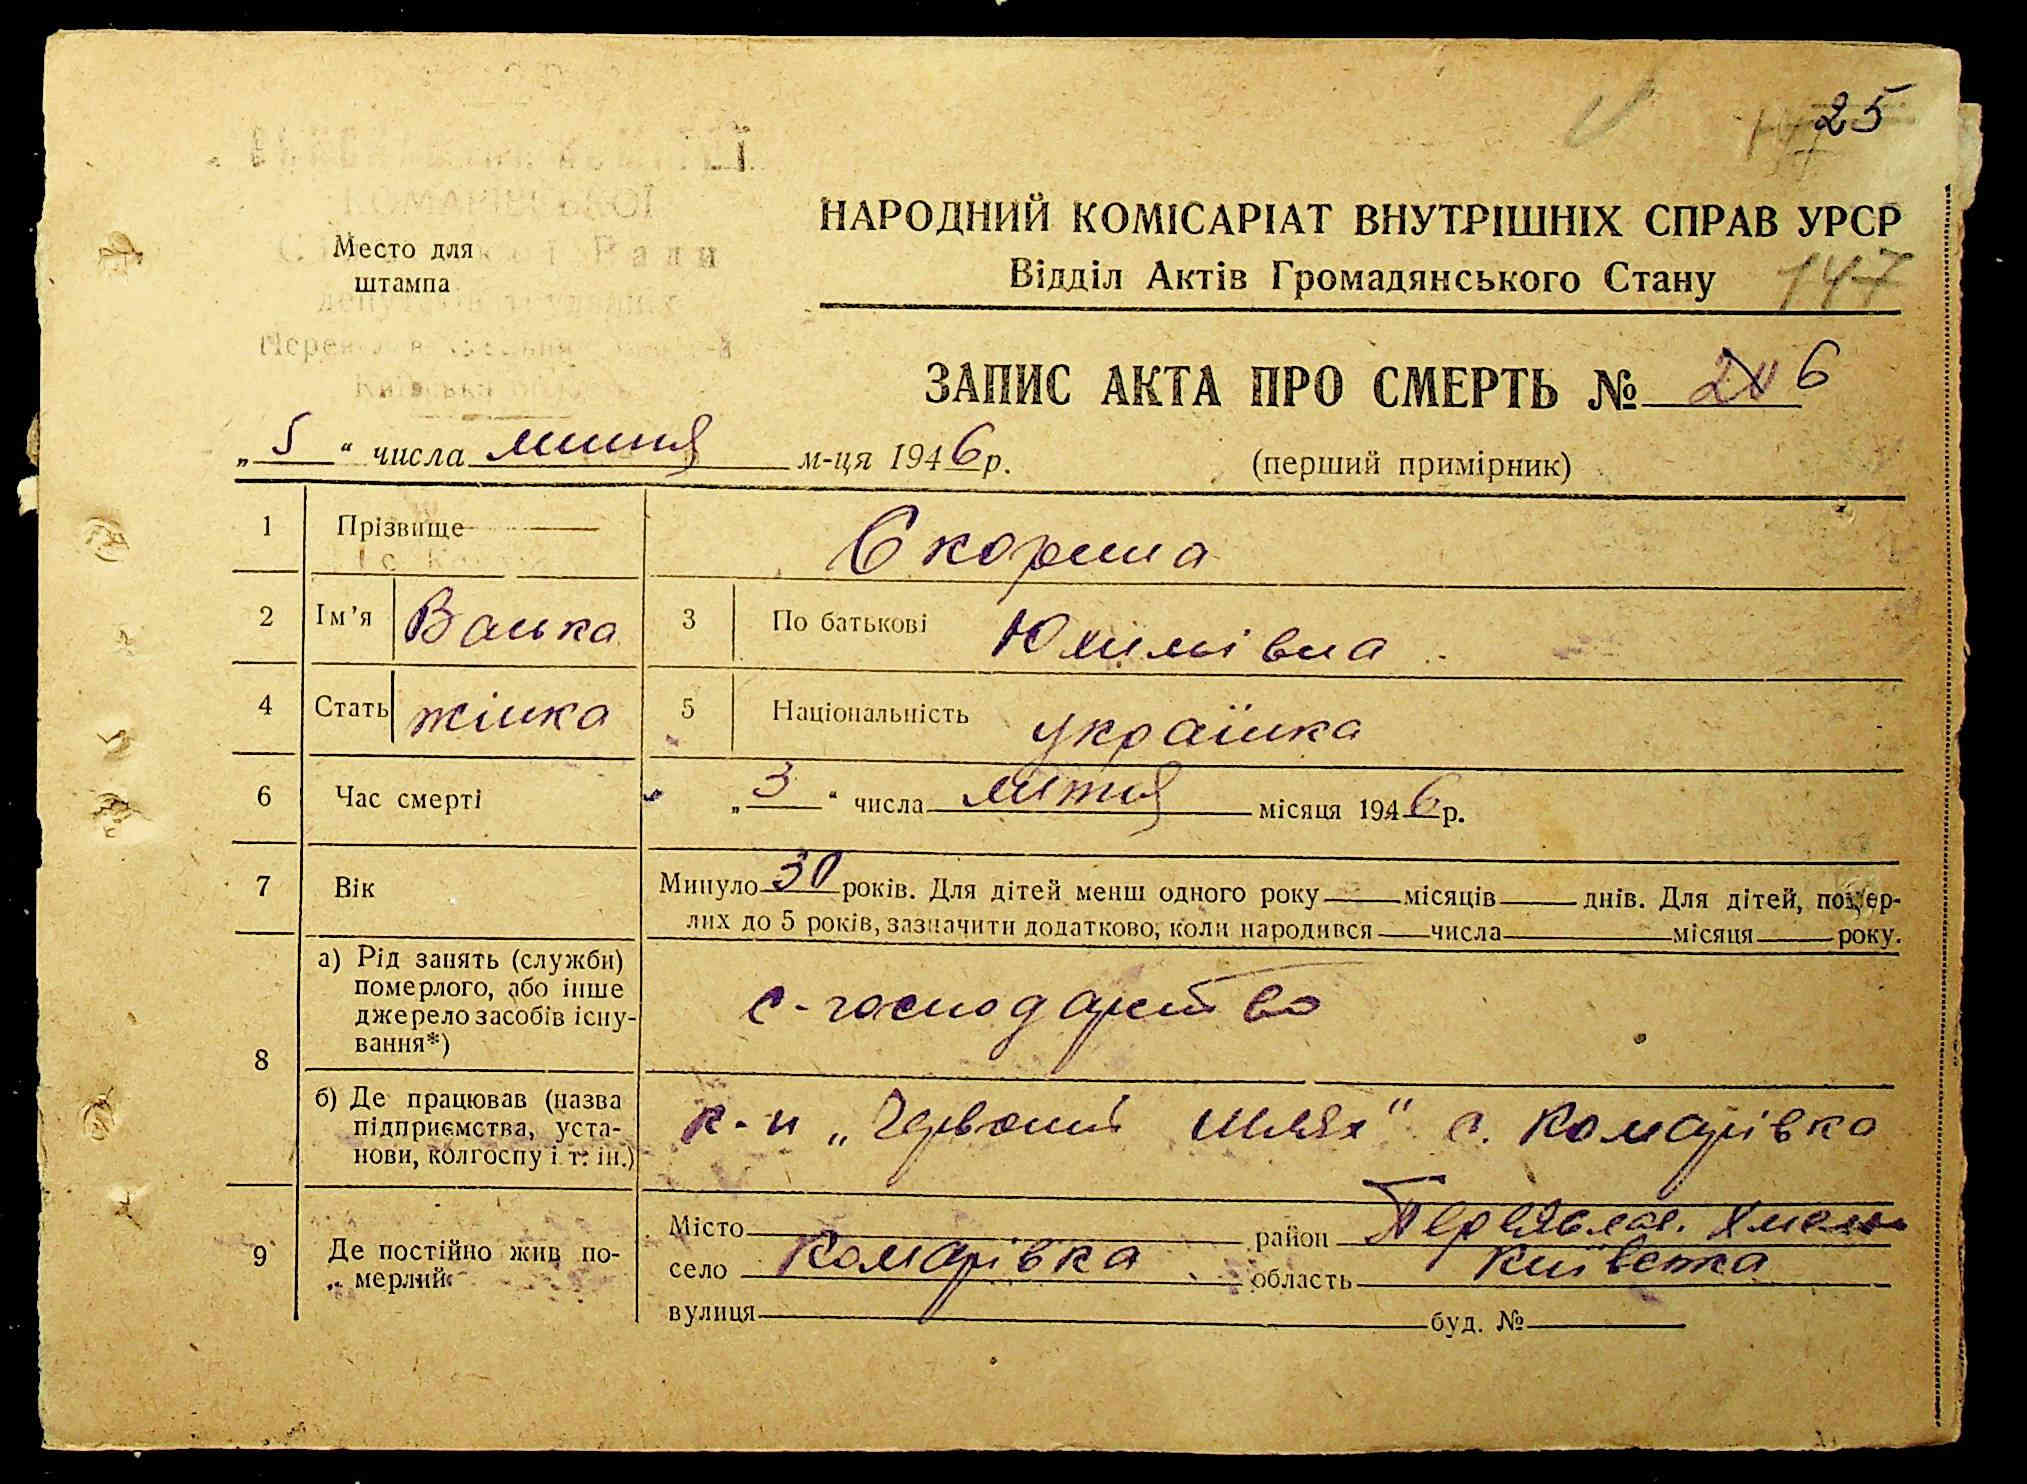 25
НАРОДНИЙ КОМІСАРІАТ ВНУТРІШНІХ СПРАВ УРСР
Відділ Актів Громадянського Стану 147
Место для штампа
КОМАРІВСЬКОЇ
Ради
ЗАПИС АКТА ПРО СМЕРТЬ № 6
„ 5 “ числа липня м-ця 1946 р. (перший примірник)
1 Прізвище Скорина
2 Ім’я Ванка 3 По батькові Юхимівна
4 Стать жінка 5 Національність українка
6 Час смерті „ 3 “ числа липня місяця 1946 р.
7 Вік Минуло 30 років. Для дітей менш одного року місяців днів. Для дітей, помер-
лих до 5 років, зазначити додатково, коли народився числа місяця року.
8 а) Рід занять (служби)
померлого, або інше
джерело засобів існу-
вання*) с-господарство
б) Де працював (назва
підприємства, уста-
нови, колгоспу і т. ін.) к-п „Червоний Шлях“ с. Комарівка
9 Де постійно жив по-
мерлий
Місто район Переяслав. Хмельн
село Комарівка область Київська
вулиця буд. №